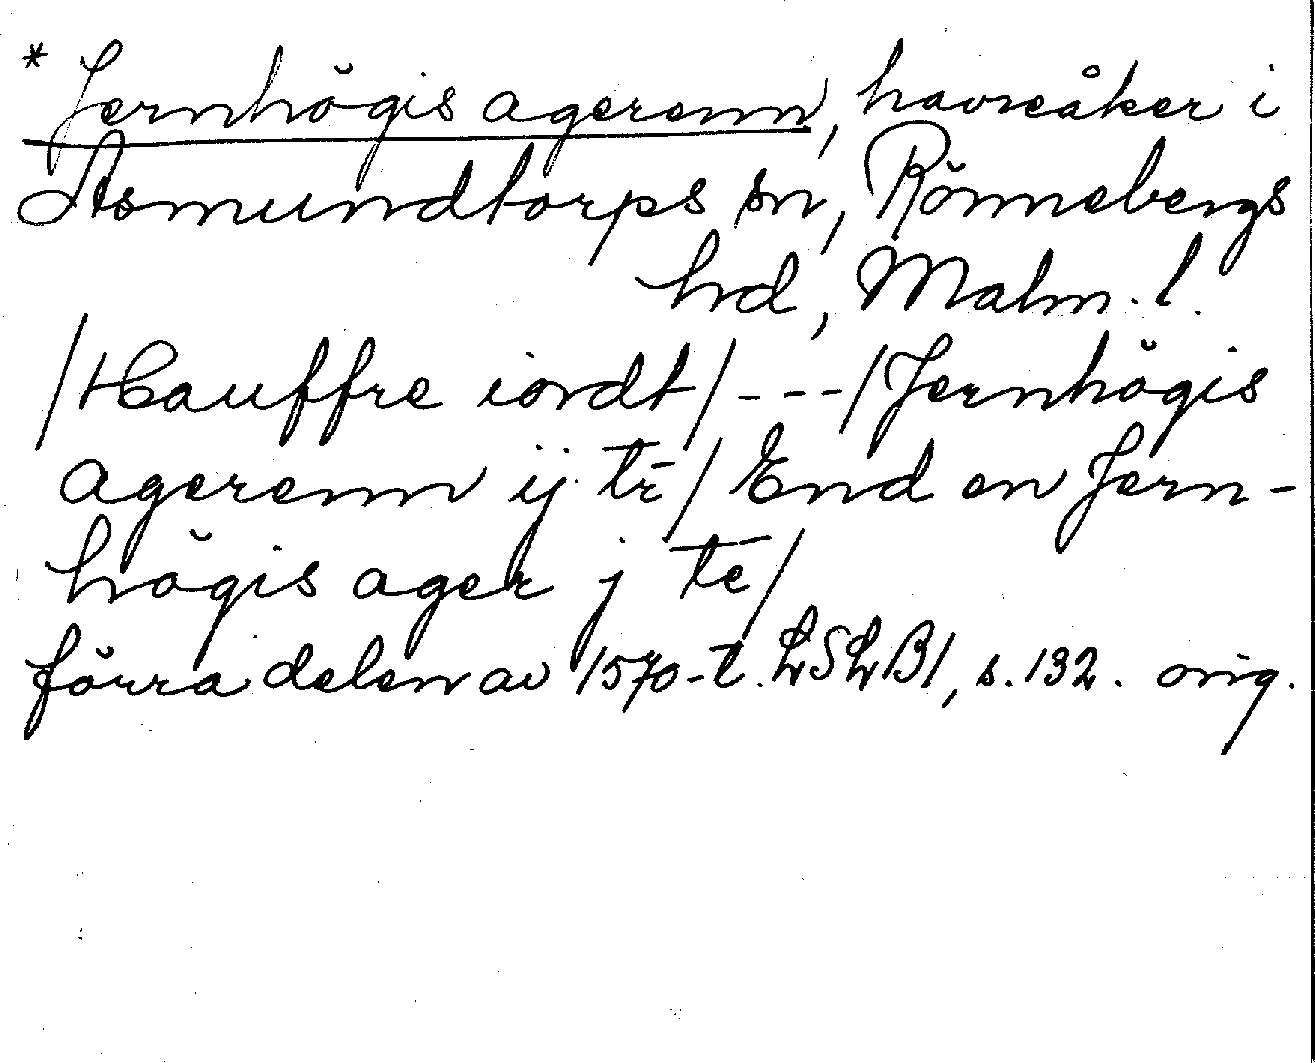 * Jernhögis agerenn, havreåker i
Asmundtorps sn, Rönnebergs
hd, Malm. l.
/Hauffre iordt/ - - - /Jernhögis
agerenn ij tr̄/ End en Jern-
högis ager j tē/
förra delen av 1570-t. LSLB1, s. 132. orig.